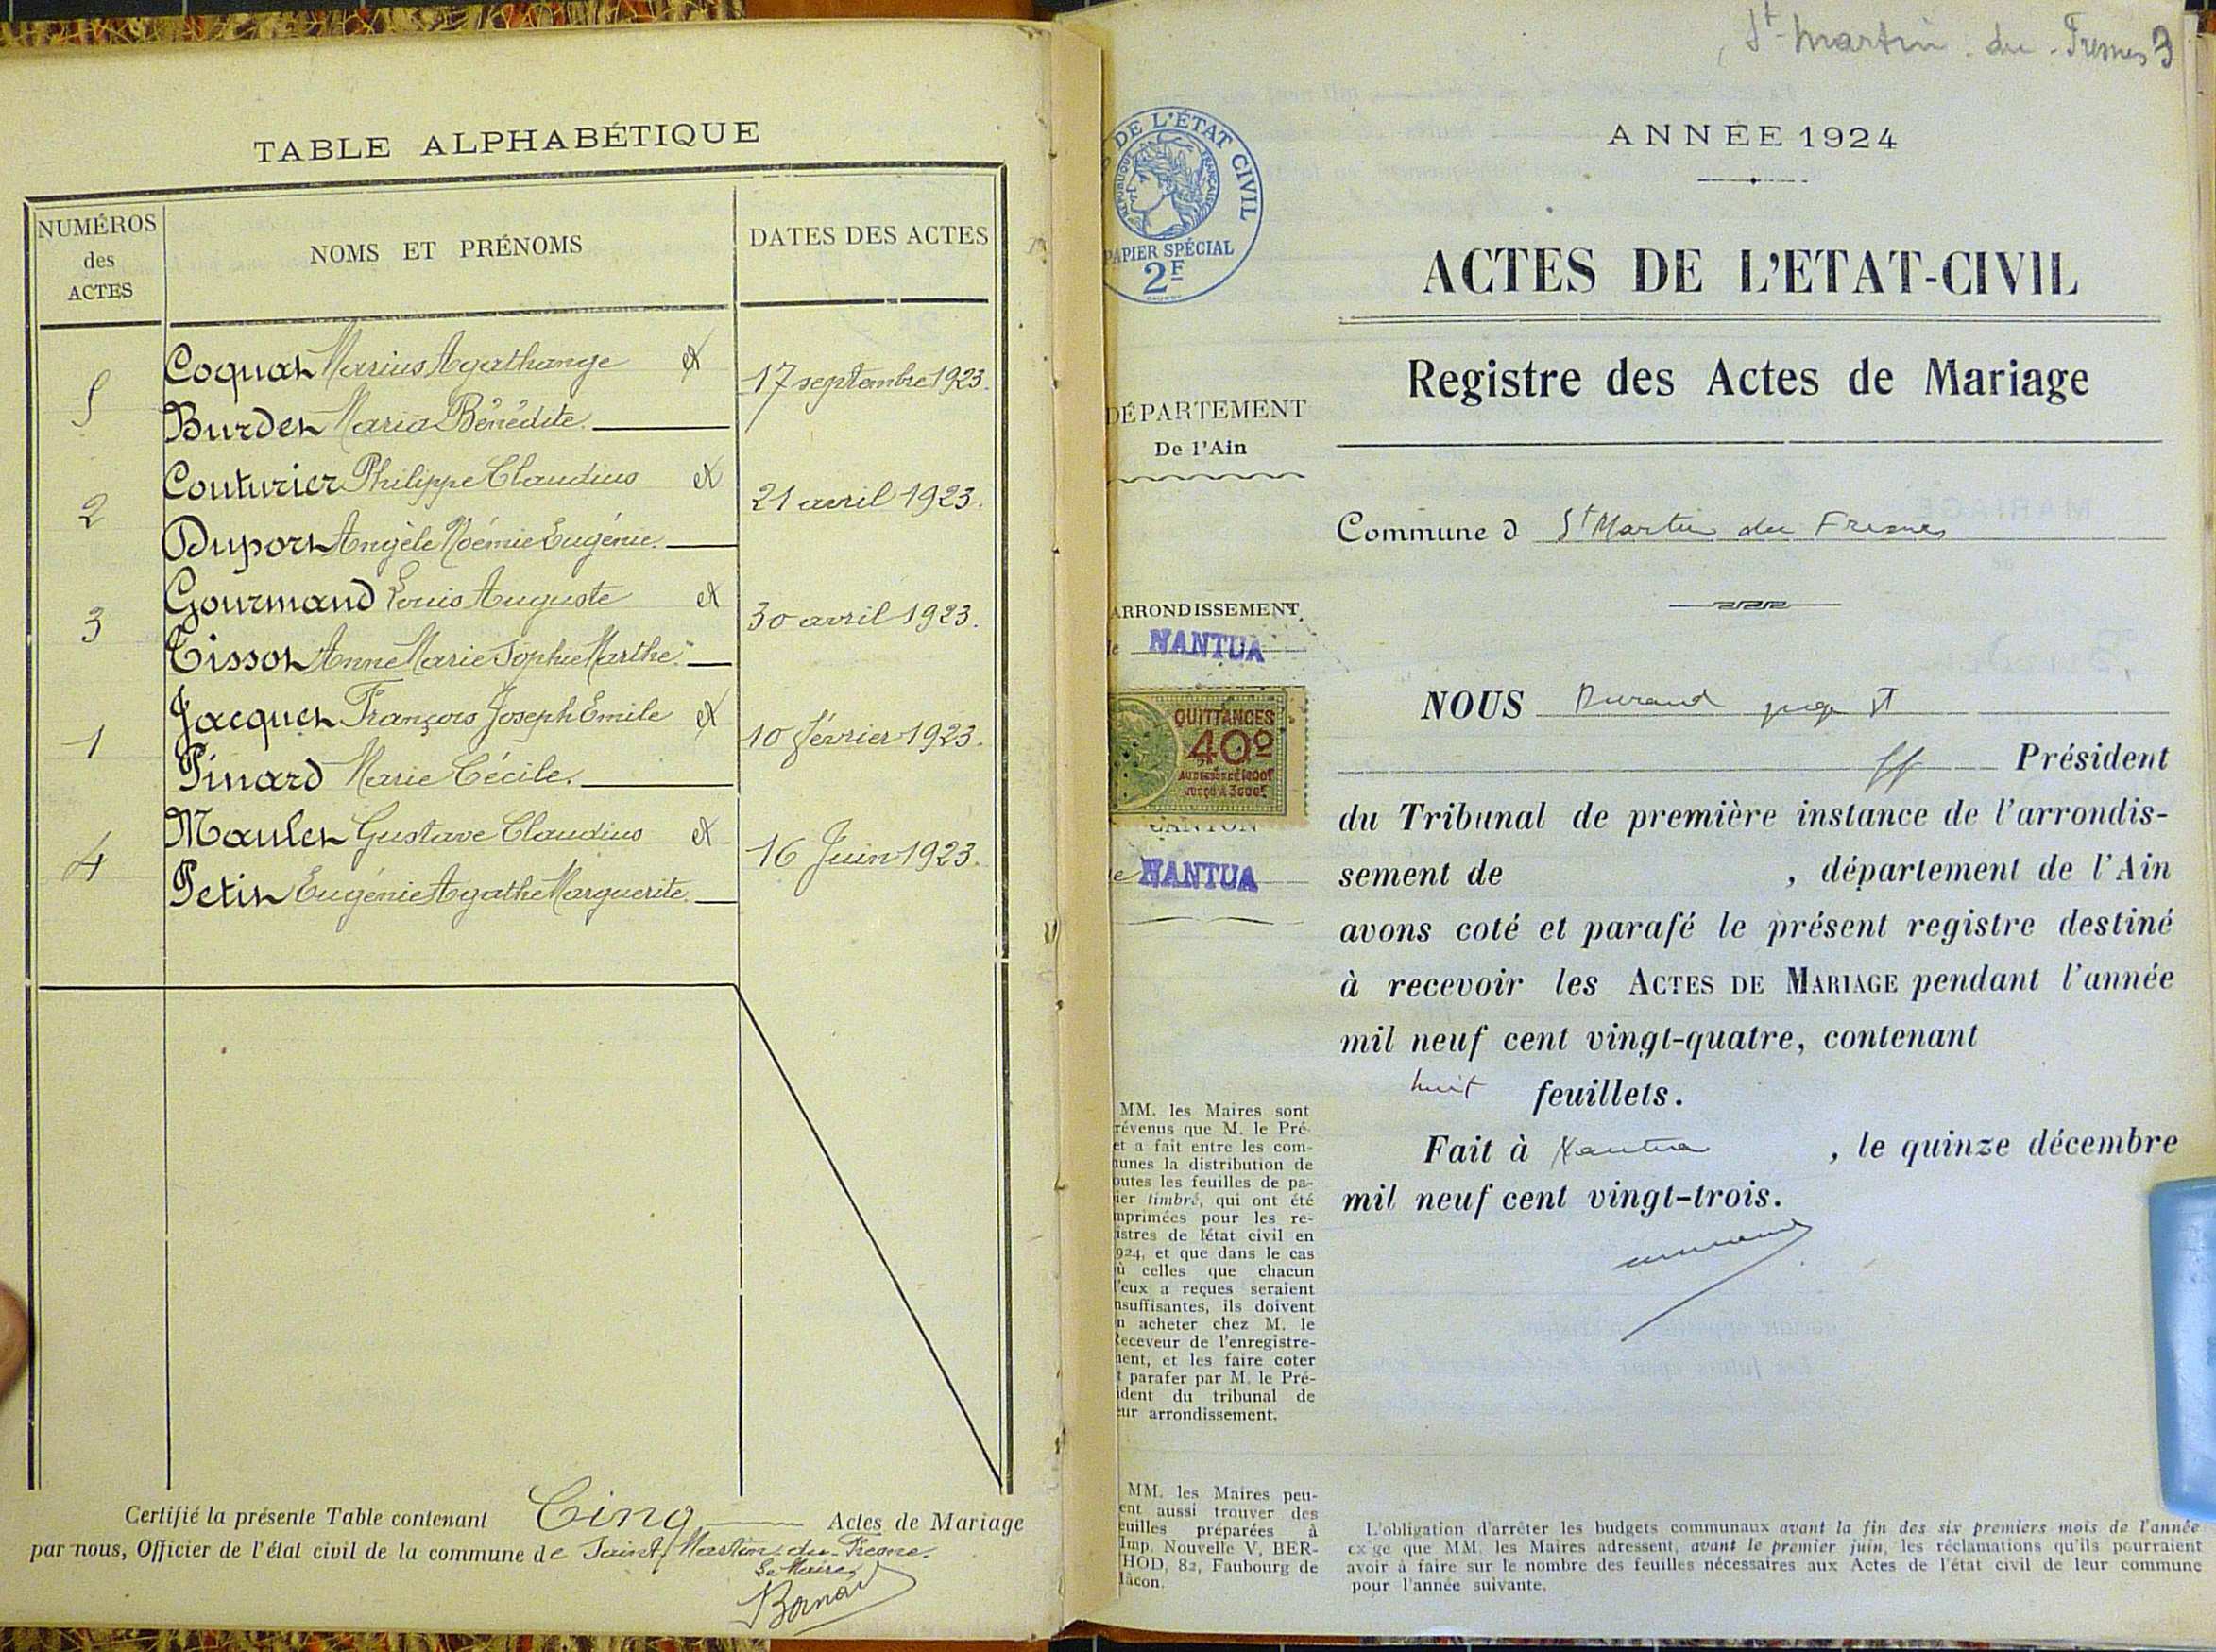 TABLE ALPHABÉTIQUE
NUMÉROS
des
ACTES
NOMS ET PRÉNOMS
DATES DES ACTES
5
Coquat Marius Agathange et
17 septembre 1923.
Burdet Maria Bénédite.
2
Couturier Philippe Claudius et
21 avril 1923.
Duport Angèle Noémie Eugénie.
3
Gourmand Louis Auguste et
30 avril 1923.
Tissot Anne Marie Sophie Marthe.
1
Jacquet François Joseph Emile et
10 février 1923.
Pinard Marie Cécile.
4
Maulet Gustave Claudius et
16 Juin 1923.
Petit Eugénie Agathe Marguerite.
Certifié la présente Table contenant Cinq Actes de Mariage
par nous, Officier de l'état civil de la commune de Saint Martin-du-Fresne.
Le Maire,
St Martin-du-Fresnes 3
DE L'ÉTAT CIVIL
RÉPUBLIQUE FRANÇAISE
PAPIER SPÉCIAL
2F
ANNÉE 1924
ACTES DE L'ETAT-CIVIL
Registre des Actes de Mariage
DÉPARTEMENT
De l'Ain
Commune d St Martin du Fresnes
ARRONDISSEMENT
NANTUA
QUITTANCES
40c
CANTON
NANTUA
NOUS Durand juge
ff Président
du Tribunal de première instance de l'arrondis-
sement de , département de l'Ain
avons coté et parafé le présent registre destiné
à recevoir les ACTES DE MARIAGE pendant l'année
mil neuf cent vingt-quatre, contenant
huit feuillets.
Fait à Nantua , le quinze décembre
mil neuf cent vingt-trois.
MM. les Maires sont
révenus que M. le Pré-
et a fait entre les com-
unes la distribution de
outes les feuilles de pa-
ier timbré, qui ont été
mprimées pour les re-
istres de l'état civil en
924, et que dans le cas
ù celles que chacun
'eux a reçues seraient
nsuffisantes, ils doivent
n acheter chez M. le
eceveur de l'enregistre-
ent, et les faire coter
t parafer par M. le Pré-
ident du tribunal de
eur arrondissement.
MM. les Maires peu-
ent aussi trouver des
euilles préparées à
Imp. Nouvelle V, BER-
HOD, 82, Faubourg de
âcon.
L'obligation d'arrêter les budgets communaux avant la fin des six premiers mois de l'année
exige que MM. les Maires adressent, avant le premier juin, les réclamations qu'ils pourraient
avoir à faire sur le nombre des feuilles nécessaires aux Actes de l'état civil de leur commune
pour l'année suivante.